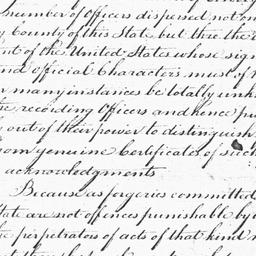 number of Officers dispersed not on
County of this State but thro' the
nt of the United States whose sign
nd official Characters must of
many instances be totally unkn
recording Officers and hence pu
out of their power to distinguish
om genuine Certificates of such
acknowledgments
Because as forgeries committed
tate are not offences punishable by
perpetrators of acts of that kind